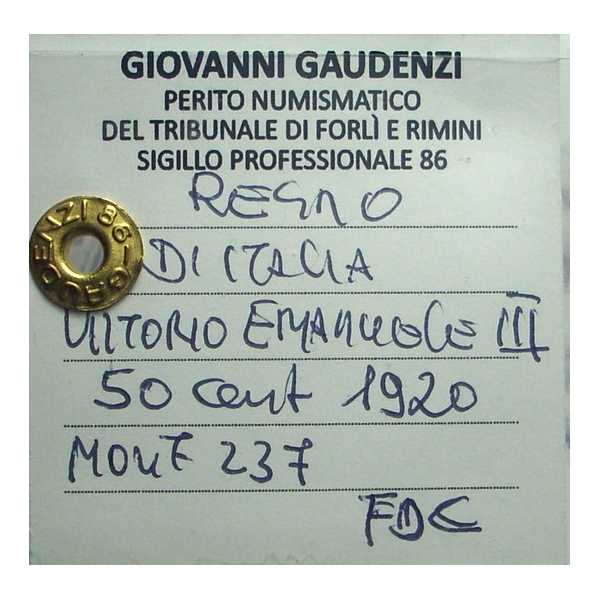 GIOVANNI GAUDENZI
PERITO NUMISMATICO
DEL TRIBUNALE DI FORLÌ E RIMINI
SIGILLO PROFESSIONALE 86
REGNO
DI ITALIA
VITTORIO EMANUELE III
50 cent 1920
MONT 237
FDC
GAUDENZI 86